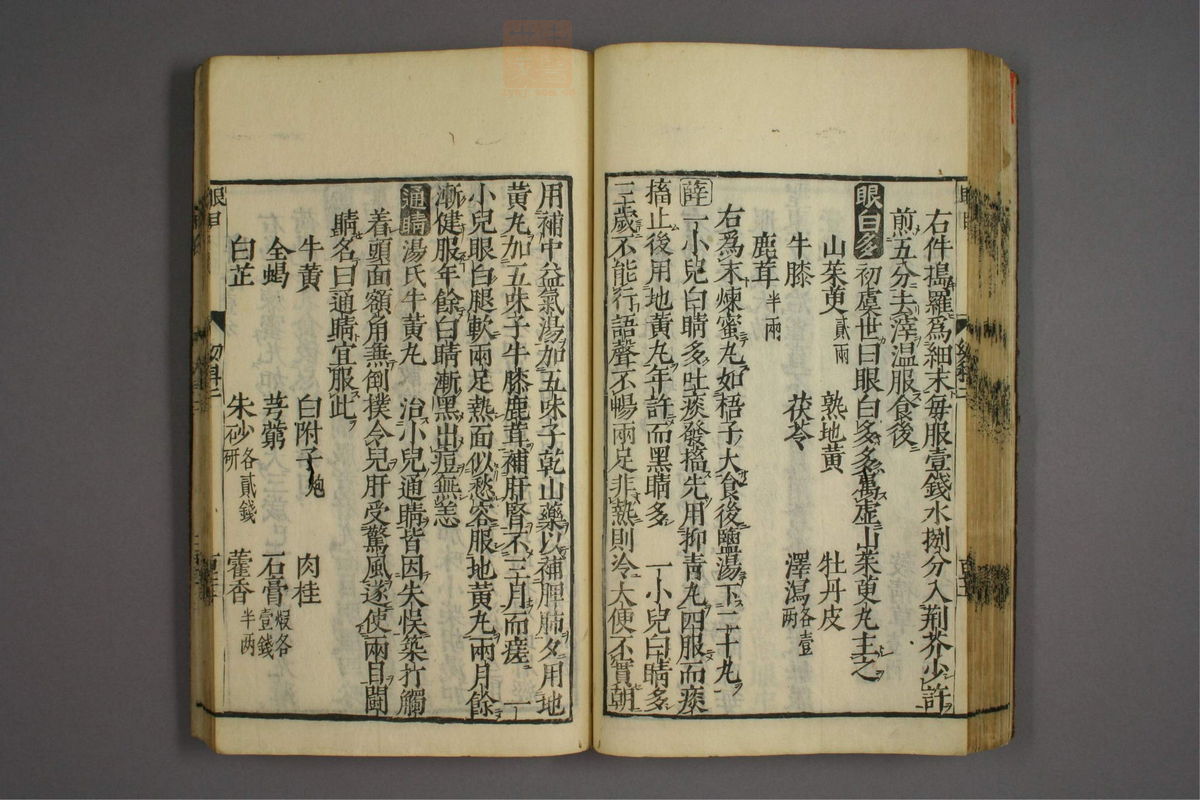 右件搗羅爲細末毎服壹錢水捌分入荆芥少許
前五分去滓温服食後
眼白多 初虞世曰眼白多多屬虚山茱萸丸主之
山茱萸貳兩 熟地黄 牡丹皮
牛膝 茯苓 澤瀉各壹兩
鹿茸半兩
右爲末煉蜜丸如梧子大食後鹽湯下二十丸
薛 一小兒白睛多吐痰發搐先用抑青丸四服而痰
搐止後用地黄丸年許而黑睛多 一小兒白睛多
三歲不能行語聲不暢兩足非熱則冷大便不實朝
用補中益氣湯加五味子乾山藥以補脾肺夕用地
黄丸加五味子牛膝鹿茸補肝腎不三月而瘥 一
小兒眼白腿軟兩足熱面似愁容服地黄丸兩月餘
漸健服年餘白睛漸黑出痘無恙
通睛 湯氏牛黄丸 治小兒通睛皆因失悞築打觸
着頭面額角無倒撲令兒肝受驚風遂使兩目鬭
睛名曰通睛宜服此
牛黄 白附子炮 肉桂
全蝎 芎藭 石膏煆各壹錢
白芷 朱砂研各貳錢 藿香半两